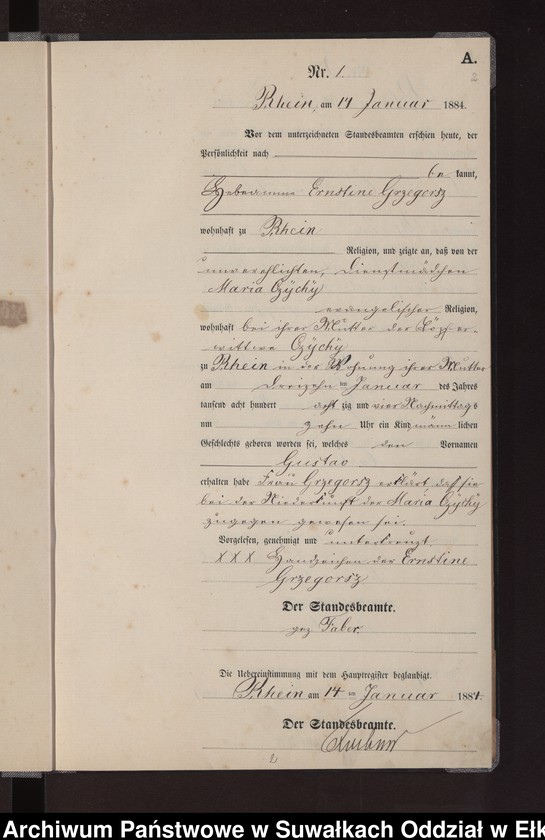 A.
2
Nr. 1.
Rhein, am 14 Januar 1884.
Vor dem unterzeichneten Standesbeamten erschien heute, der
Persönlichkeit nach
be kannt,
Hebeamme Ernstine Grzegorsz
wohnhaft zu Rhein
Religion, und zeigte an, daß von der
unverehlichten, Dienstmädchen
Maria Czÿchÿ
evangelischer Religion,
wohnhaft bei ihrer Mutter der
wittwe Czÿchÿ
zu Rhein in der Wohnung ihrer Mutter
am Dreizehn ten Januar des Jahres
tausend acht hundert acht zig und vier Nachmittags
um zehn Uhr ein Kind männ lichen
Geschlechts geboren worden sei, welches den Vornamen
Gustav
erhalten habe Frau Grzegorsz erklärt, daß sie
bei der Niederkunft der Maria Czÿchÿ
zugegen gewesen sei.
Vorgelesen, genehmigt und unterkreuzt.
XXX Handzeichen der Ernstine
Grzegorsz
Der Standesbeamte.
gez. Faber.
Die Uebereinstimmung mit dem Hauptregister beglaubigt.
Rhein am 14 ten Januar 1884.
Der Standesbeamte.
2
Archiwum Państwowe w Suwałkach Oddział w Ełk